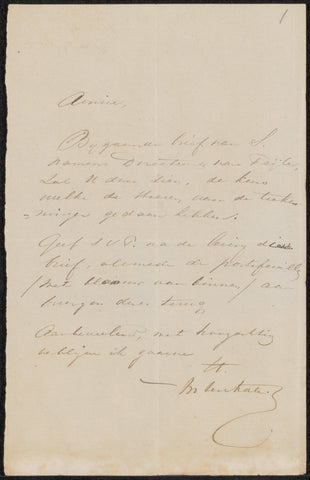 1
Amice,
Bijgaande brief van S.
namens Directeur van Teyler,
Zal U doen zien, de keus
welke de Heeren, van de teeke
ningen gedaan hebben.
Geef S.V.P. na de lezing dien
brief, alsmede de portefeuille
/met blaauw van binnen/ aan
brenger dezes terug
Aanbevelend, met hoogachting
verblijve ik gaarne
H.